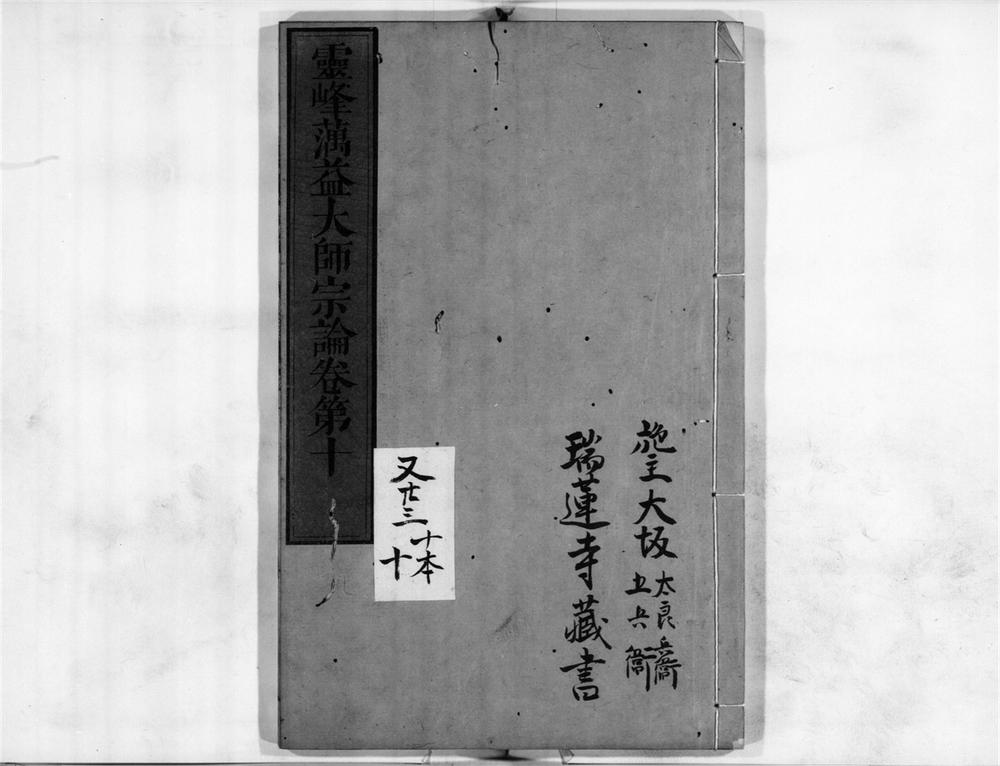 施主大坂
太良兵衞
五兵衞
瑞蓮寺藏書
又廿三
十本
十
靈峰蕅益大師宗論卷第十